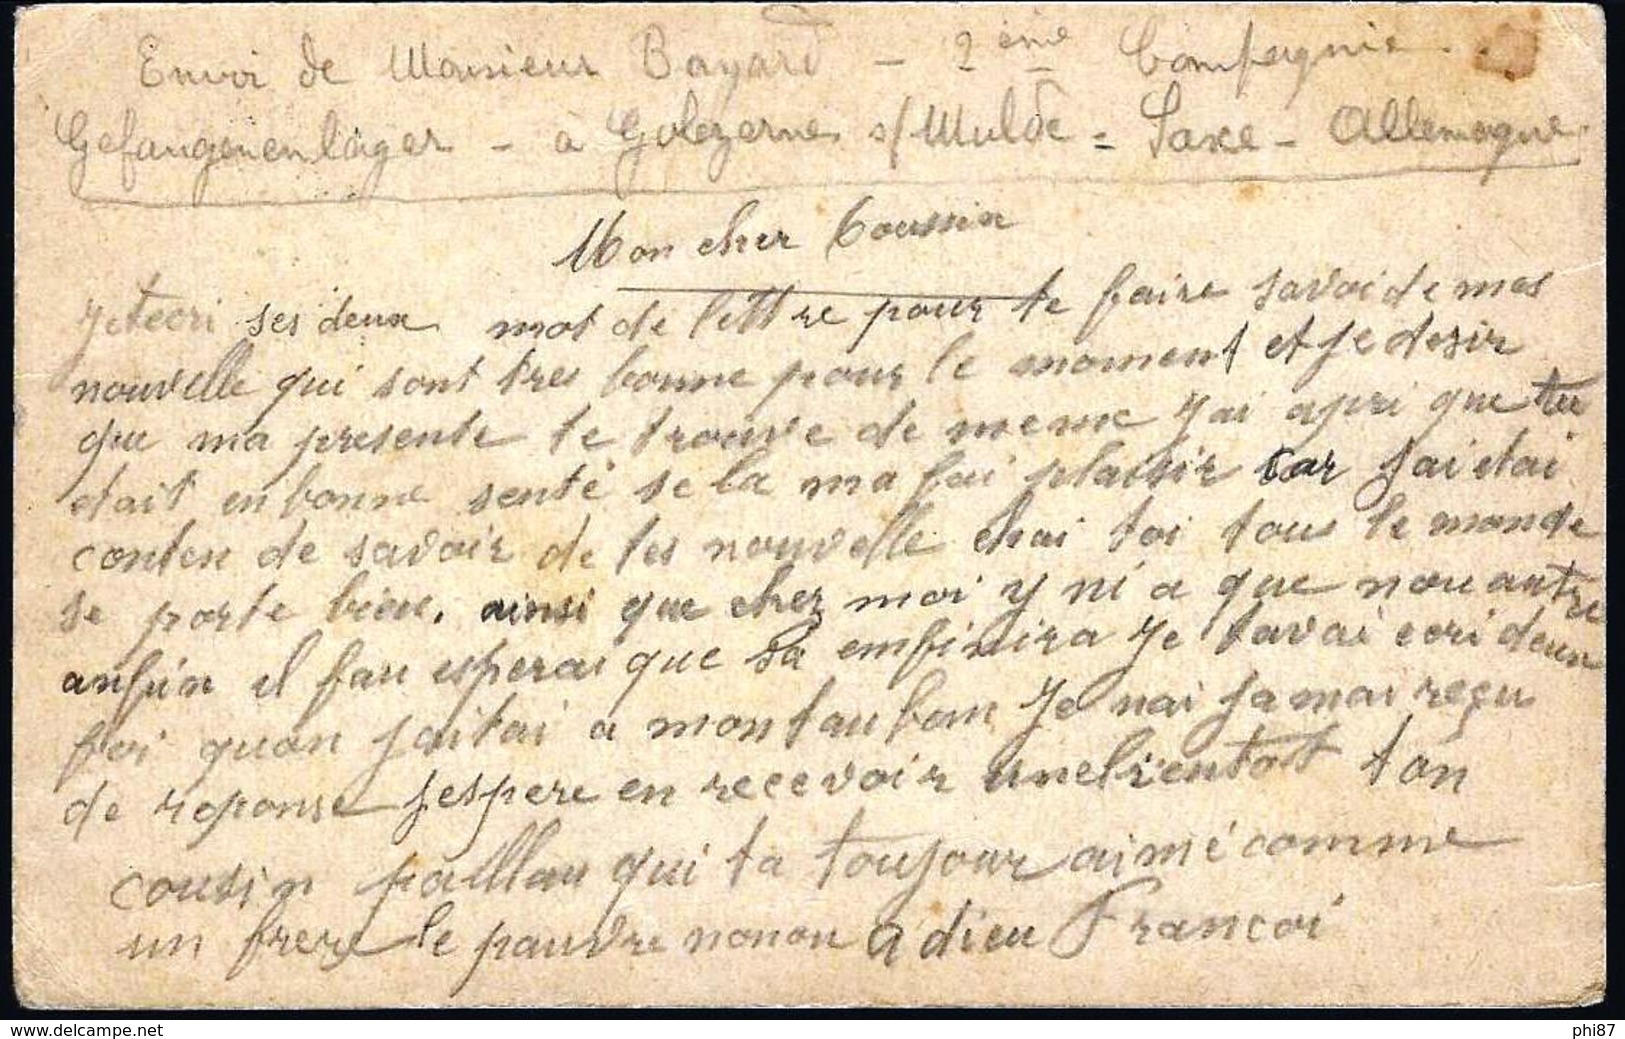 Envoi de Monsieur Bayard - 2ème Compagnie.
Gefangenenlager - à Golezerne s/Mulde = Saxe - Allemagne.
Mon cher Coussin
Je tecri ses deux mot de lettre pour te faire savoi de mes
nouvelle qui sont tres bonne pour le moment et je desir
que ma presente te trouve de meme J'ai apri que tu
etait en bonne senté se la ma fai plaisir car jai etai
conten de savoir de tes nouvelle chai toi tous le monde
se porte bien. ainsi que chez moi y ni a que nou autre
anfin il fau esperai que sa emfinira Je tavai ecri deux
foi quan jaitai a montauban Je nai jamai reçu
de reponse jespere en recevoir une bientot ton
cousin qui ta toujour aimé comme
un frere le pauvre nonou adieu Francoi
phi87